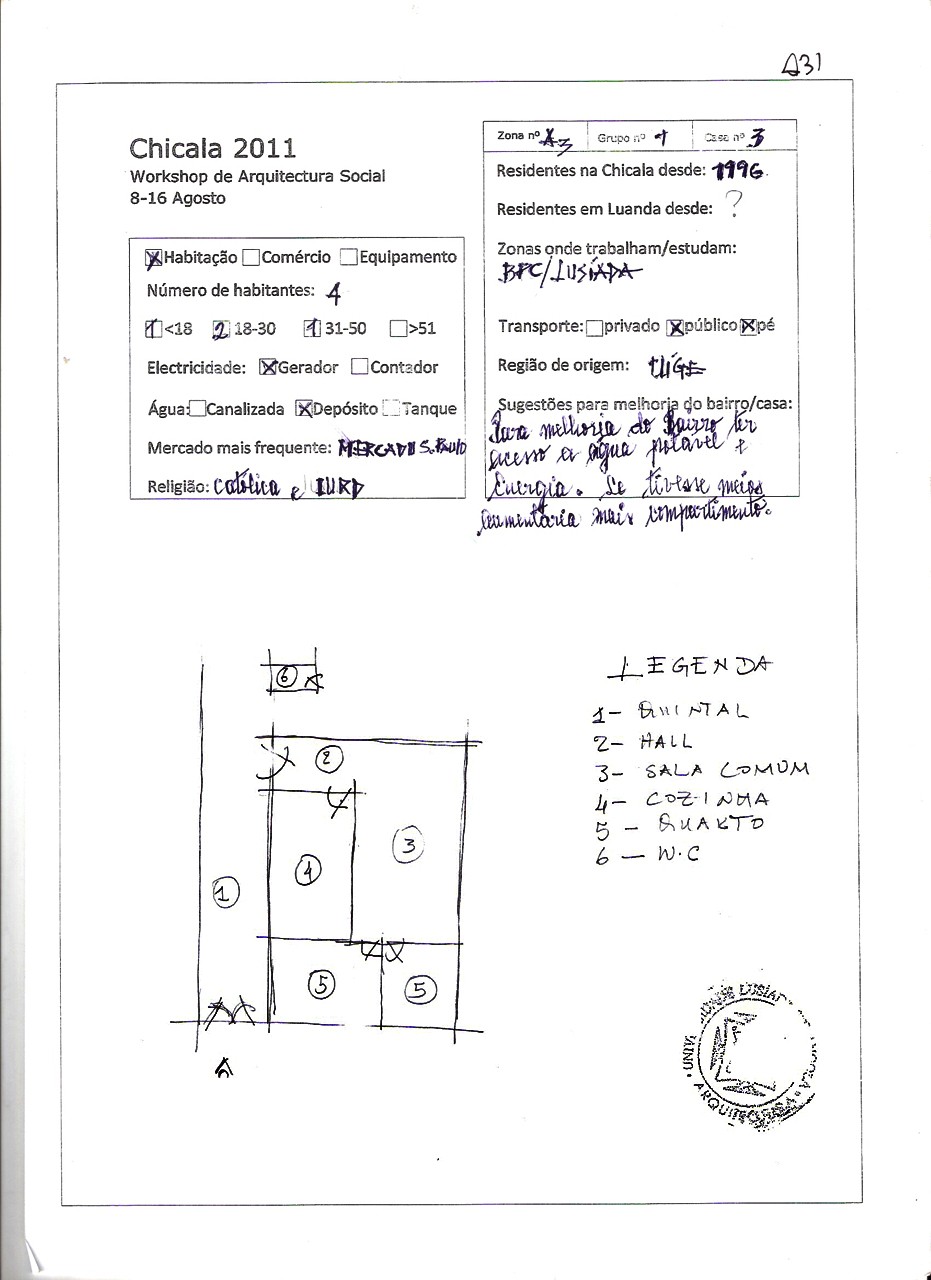 A31
Chicala 2011
Workshop de Arquitectura Social
8-16 Agosto
Zona nº A3 Grupo nº 1 Casa nº 3
Residentes na Chicala desde: 1996
Residentes em Luanda desde: ?
Zonas onde trabalham/estudam:
BPC/LUSÍADA
Transporte: privado X público X pé
Região de origem: UÍGE
Sugestões para melhoria do bairro/casa:
Para melhoria do Bairro ter
acesso a água potável e
Energia. Se tivesse meios
aumentaria mais compartimento.
X Habitação Comércio Equipamento
Número de habitantes: 4
1 <18 2 18-30 1 31-50 >51
Electricidade: X Gerador Contador
Água: Canalizada X Depósito Tanque
Mercado mais frequente: MERCADO S. PAULO
Religião: católica e IURD
6
2
3
4
1
5
5
LEGENDA
1- QUINTAL
2- HALL
3- SALA COMUM
4- COZINHA
5- QUARTO
6- W.C